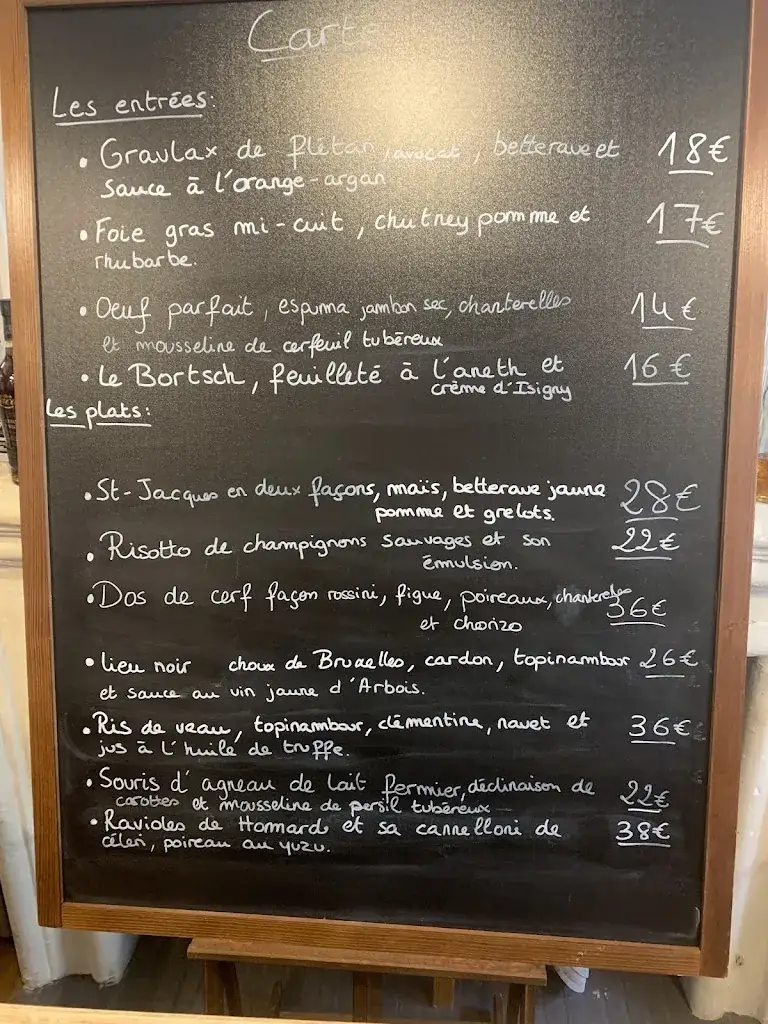 Carte
Les entrées:
• Gravlax de flétan, avocat, betterave et 18€
sauce à l'orange-argan
• Foie gras mi-cuit, chutney pomme et 17€
rhubarbe.
• Oeuf parfait, espuma jambon sec, chanterelles 14€
et mousseline de cerfeuil tubéreux
• Le Bortsch, feuilleté à l'aneth et 16€
crème d'Isigny
Les plats:
• St-Jacques en deux façons, maïs, betterave jaune 28€
pomme et grelots.
• Risotto de champignons sauvages et son 22€
émulsion.
• Dos de cerf façon rossini, figue, poireaux, chanterelles 36€
et chorizo
• lieu noir choux de Bruxelles, cardon, topinambour 26€
et sauce au vin jaune d'Arbois.
• Ris de veau, topinambour, clémentine, navet et 36€
jus à l'huile de truffe.
• Souris d'agneau de lait fermier, déclinaison de 22€
carottes et mousseline de persil tubéreux
• Ravioles de Homard et sa cannelloni de 38€
céleri, poireau au yuzu.